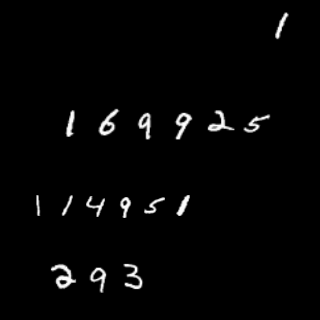 1
169925
114951
293